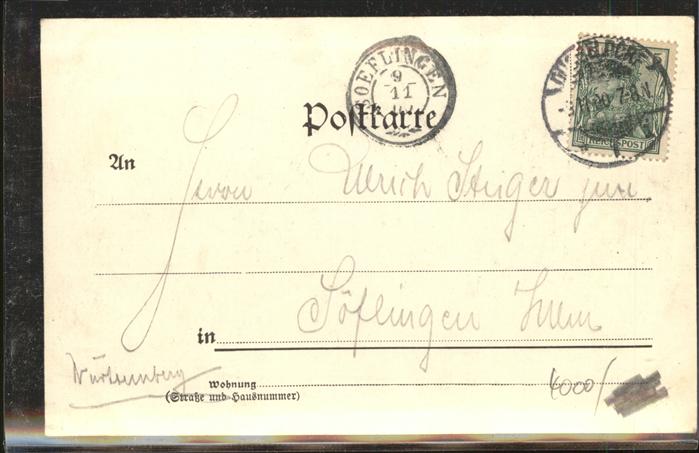 SOEFLINGEN
9
11
Postkarte
REICHSPOST
An
Herrn Ulrich Steiger jun
in Söflingen Ulm
Württemberg
Wohnung
(Straße und Hausnummer)
4000/